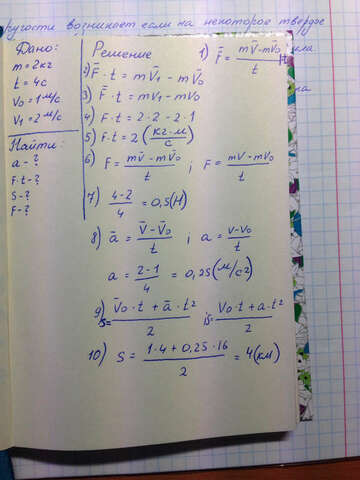 ругости возникает если на некоторое твердое
Дано:
m = 2кг
t = 4с
V0 = 1м/с
V1 = 2м/с
Найти:
a - ?
F·t - ?
S - ?
F - ?
Решение
1) F̄ = (mV̄ - mV̄0)/t
2) F̄·t = mV̄1 - mV̄0
3) F̄·t = mV1 - mV0
4) F·t = 2·2 - 2·1
5) F·t = 2 (кг·м/с)
6) F = (mV̄ - mV̄0)/t ; F = (mV - mV0)/t
7) (4-2)/4 = 0,5(Н)
8) ā = (V̄ - V̄0)/t ; a = (V - V0)/t
a = (2-1)/4 = 0,25(м/с2)
9) S = (V̄0·t + ā·t²)/2 ; S = (V0·t + a·t²)/2
10) S = (1·4 + 0,25·16)/2 = 4(км)